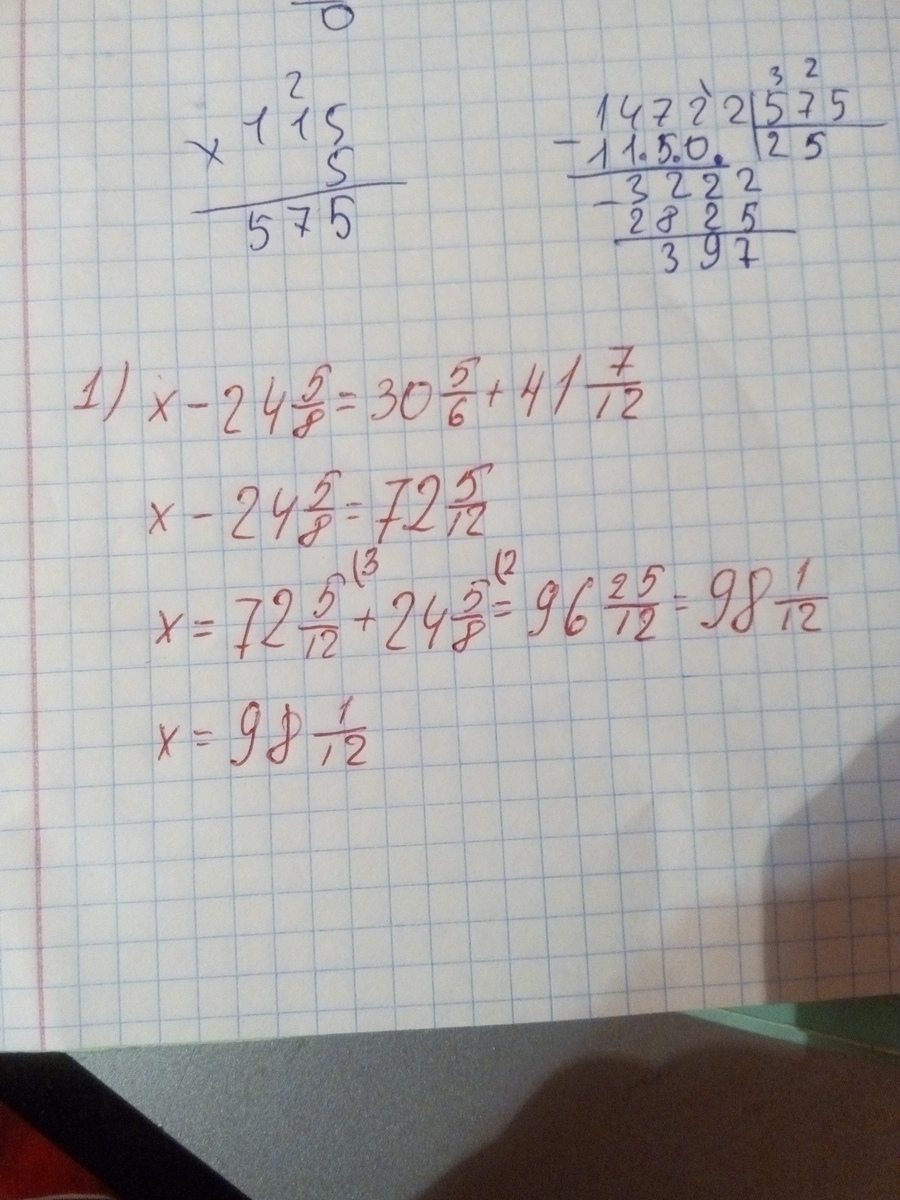 0
2
× 115
5
575
14722 | 575
3 2
- 11.5.0. | 25
- 3222
2825
397
1) x - 24 5/8 = 30 5/6 + 41 7/12
x - 24 5/8 = 72 5/12
x = 72 5/12 (3 + 24 5/8 (2 = 96 25/12 = 98 1/12
x = 98 1/12